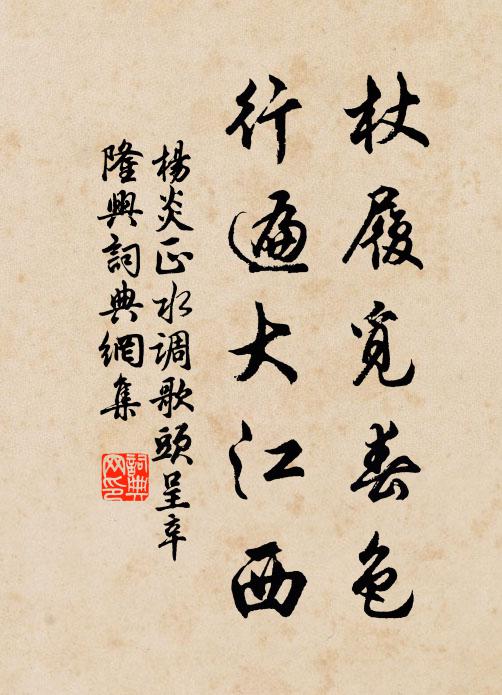 杖履覓春色
行遍大江西
楊炎正水调歌頭呈辛
隆興詞典網集
詞典
网印